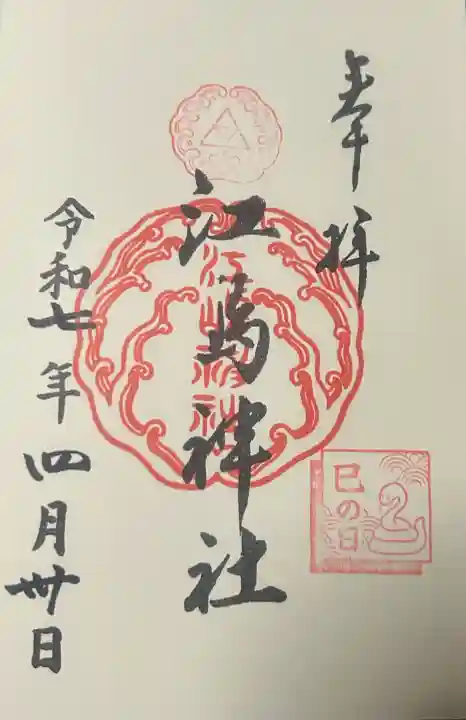 奉拝
江島神社
江島神社
巳の日
令和七年四月卅日